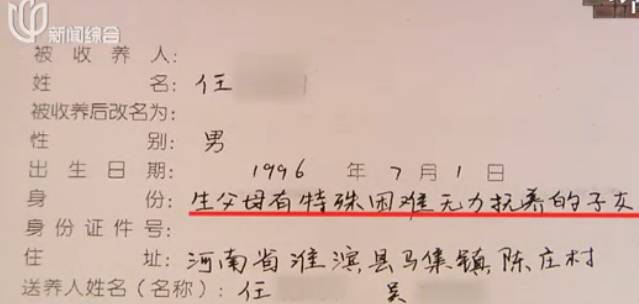 新闻综合
被收养人:
姓名: 任
被收养后改名为:
性别: 男
出生日期: 1996年7月1日
身份: 生父母有特殊困难无力抚养的子女
身份证件号:
住址: 河南省淮滨县马集镇陈庄村
送养人姓名(名称): 任 吴